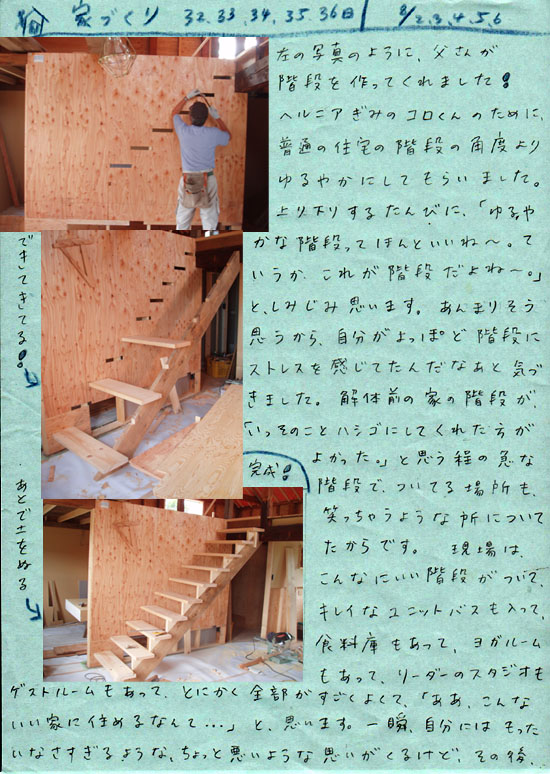 家づくり 32.33.34.35.36日 8/2.3.4.5.6
左の写真のように、父さんが
階段を作ってくれました!
ヘルニアぎみのコロくんのために、
普通の住宅の階段の角度より
ゆるやかにしてもらいました。
上り下りするたんびに、「ゆるや
かな階段ってほんといいね〜。て
いうか、これが階段だよね〜。」
と、しみじみ思います。あんまりそう
思うから、自分がよっぽど階段に
ストレスを感じてたんだなあと気づ
きました。解体前の家の階段が、
「いっそのことハシゴにしてくれた方が
よかった。」と思う程の急な
階段で、ついてる場所も、
笑っちゃうような所について
たからです。 現場は、
こんなにいい階段がついて、
キレイなユニットバスも入って、
食料庫もあって、ヨガルーム
もあって、リーダーのスタジオも
ゲストルームもあって、とにかく全部がすごくよくて、「ああ、こんな
いい家に住めるなんて...」と、思います。一瞬、自分にはもった
いなさすぎるような、ちょっと悪いような思いがくるけど、その後
できてきてる!
完成!
あとで土をぬる